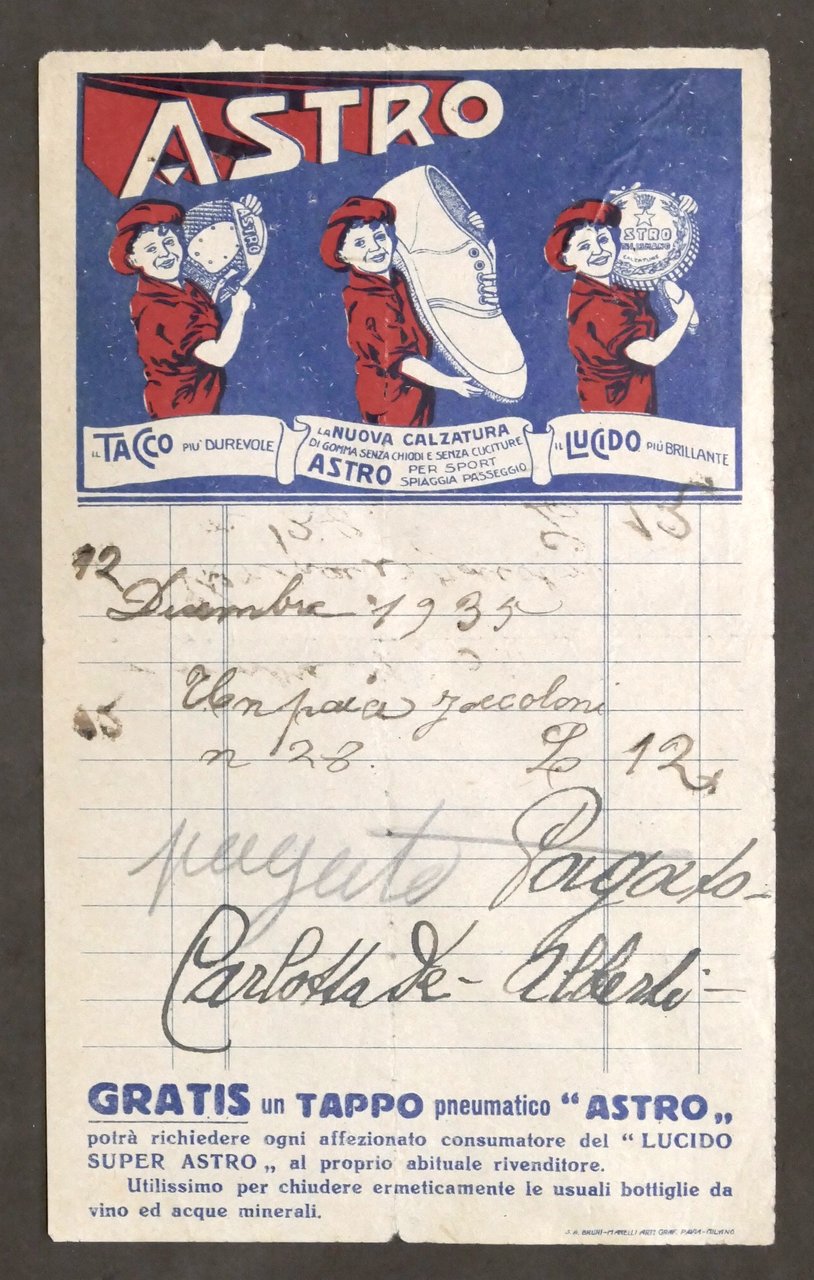 ASTRO
ASTRO
ASTRO
CALZATURE
IL TACCO PIU' DUREVOLE
LA NUOVA CALZATURA
DI GOMMA SENZA CHIODI E SENZA CUCITURE
ASTRO PER SPORT
SPIAGGIA PASSEGGIO
IL LUCIDO PIÙ BRILLANTE
15
12
Dicembre 1935
15
Un paia zoccoloni
n 28. L 12
pagato Pagato
Carlotta De Alberti
GRATIS un TAPPO pneumatico “ ASTRO „
potrà richiedere ogni affezionato consumatore del “ LUCIDO
SUPER ASTRO „ al proprio abituale rivenditore.
Utilissimo per chiudere ermeticamente le usuali bottiglie da
vino ed acque minerali.
S. A. BRUNI-MARELLI ARTI GRAF. PAVIA-MILANO